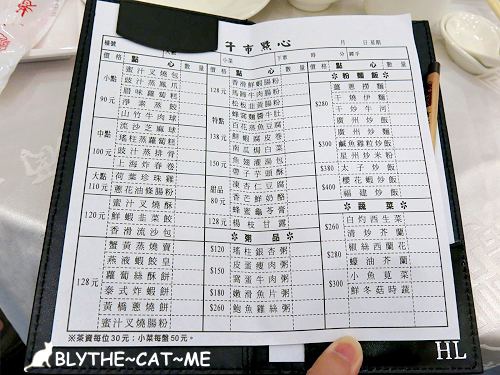 午市點心
月 日 星期
檯號 小菜 下單 時 分 經手
價格 點心 數量 價格 點心 數量 價格 點心 數量
小點 90元
蜜汁叉燒包
豉汁蒸鳳爪
腊味蘿蔔糕
淨素蒸餃
山竹牛肉球
中點 100元
流沙芝麻球
瑤柱蒸蘿蔔糕
豉汁蒸排骨
上海炸春卷
大點 110元
荷葉珍珠雞
蔥花油條腸粉
120元
蜜汁叉燒酥
鮮蝦韭菜餃
香滑流沙包
128元
蟹黃蒸燒賣
燕液蝦餃皇
蘿蔔絲酥餅
泰式炸蝦餅
黃橋蔥燒餅
蜜汁叉燒腸粉
128元
香滑鮮蝦腸粉
馬蹄牛肉腸粉
松板韭黃腸粉
特點 138元
蜂窩麵醬牛肚
百花蒸魚豆腐
鮮蝦腐皮卷
南瓜焗白菜
150元
魚翅灌湯包
帶子芋頭酥
甜品 80元
凍杏仁豆腐
香芒鮮奶酪
128元
蜂蜜龜苓膏
楊枝甘露
※ 粥品 ※
$120 瑤柱銀杏粥
$150 皮蛋瘦肉粥
窩蛋牛肉粥
$180 嫩滑魚片粥
$260 鮑魚雞絲粥
※ 粉麵飯 ※
$280
薑蔥撈麵
干燒伊麵
干炒牛河
廣州炒飯
廣州炒麵
$300 鹹魚雞粒炒飯
星州炒米粉
$380 太子炒飯
$400 櫻花蝦炒飯
福建炒飯
※ 蔬菜 ※
$260
白灼西生菜
清炒芥蘭
$280
椒絲西蘭花
蠔油芥蘭
$300
小魚莧菜
鮮冬菇時蔬
※茶資每位30元；小菜每盤50元。
BLYTHE~CAT~ME
HL